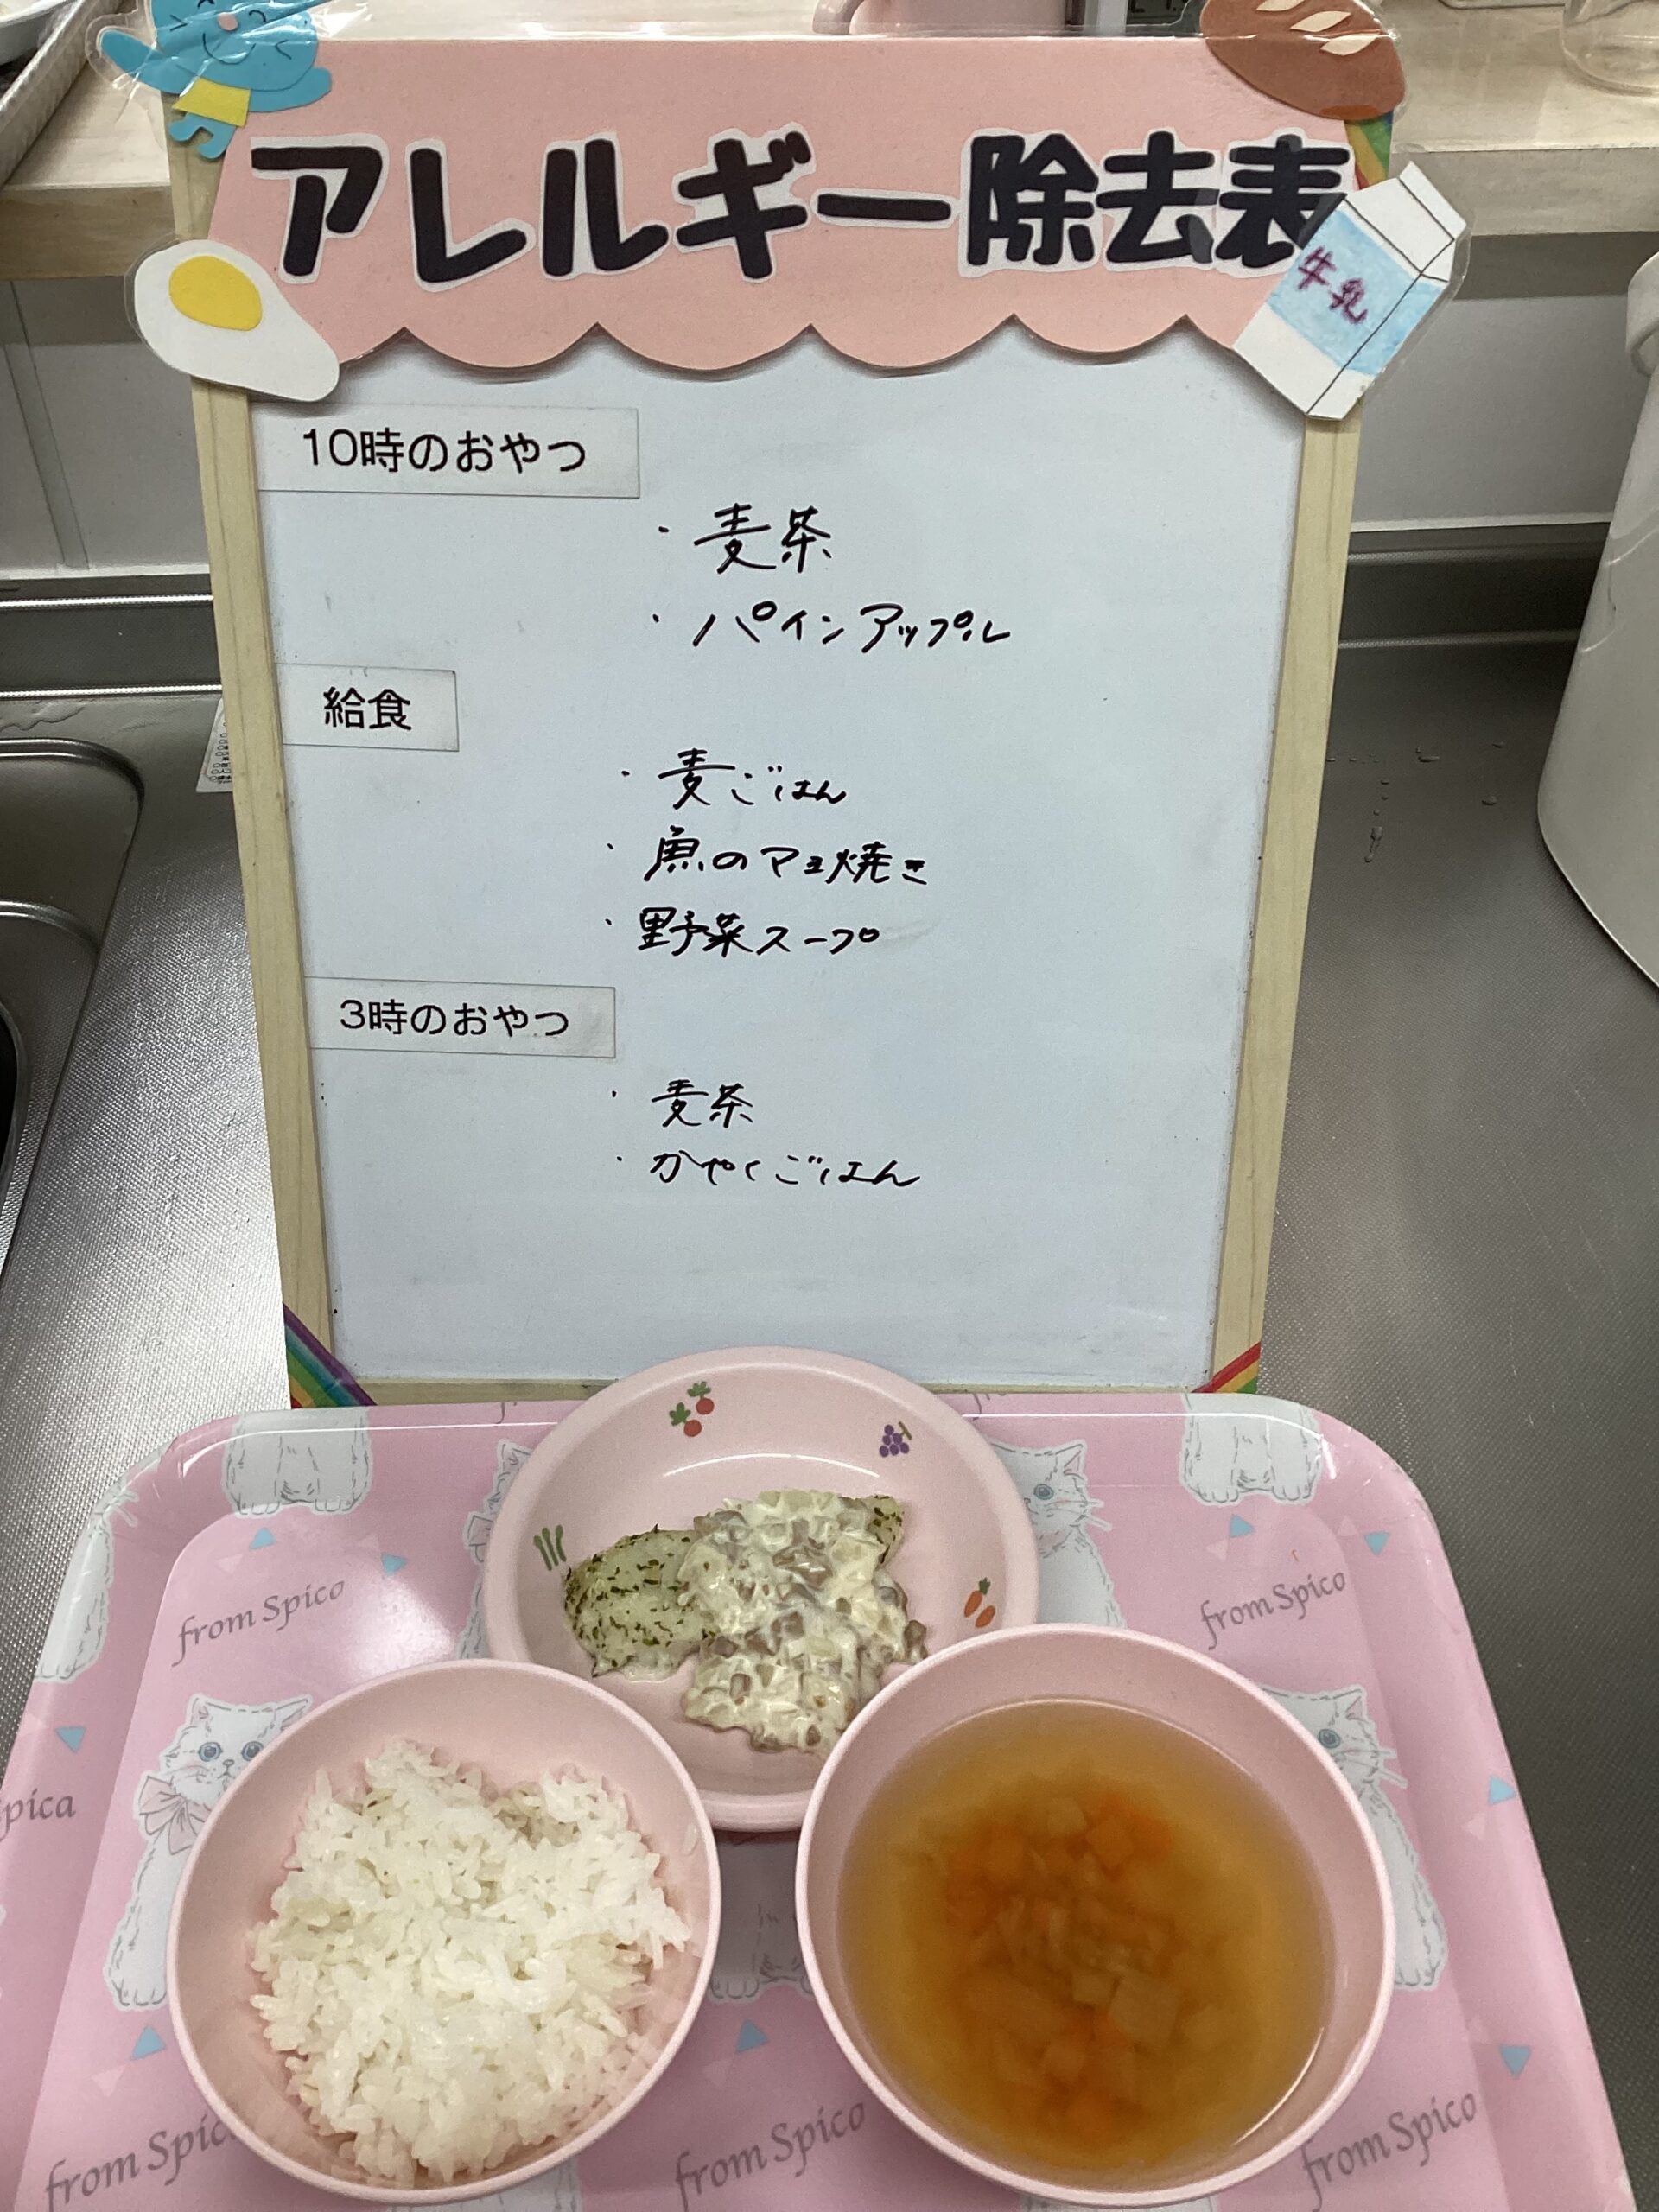 アレルギー除去表
牛乳
10時のおやつ
・麦茶
・パインアップル
給食
・麦ごはん
・魚のマヨ焼き
・野菜スープ
3時のおやつ
・麦茶
・かやくごはん
from Spico
from Spico
pica
from Spico
from Spico
from Spico